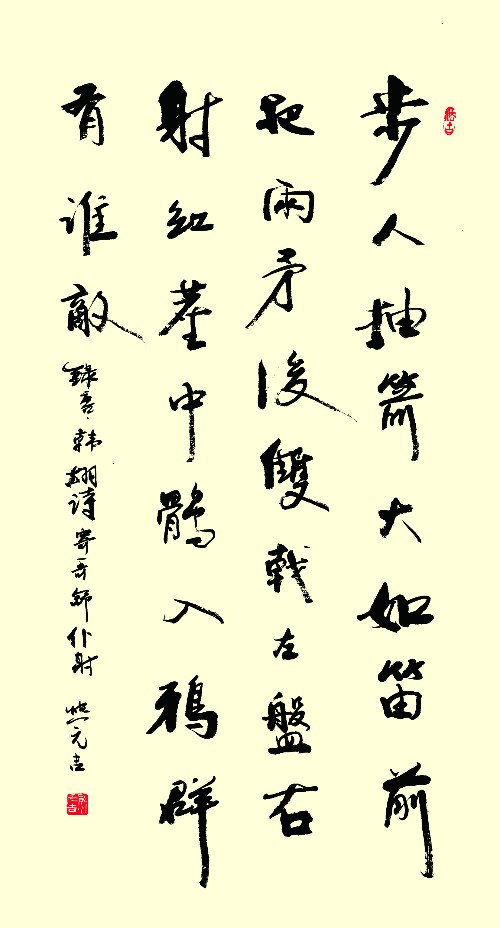 步人抽箭大如笛前
把兩矛後雙戟左盤右
射紅塵中鶻入鴉群
有誰敵
韩翃詩寄哥舒仆射
元吉